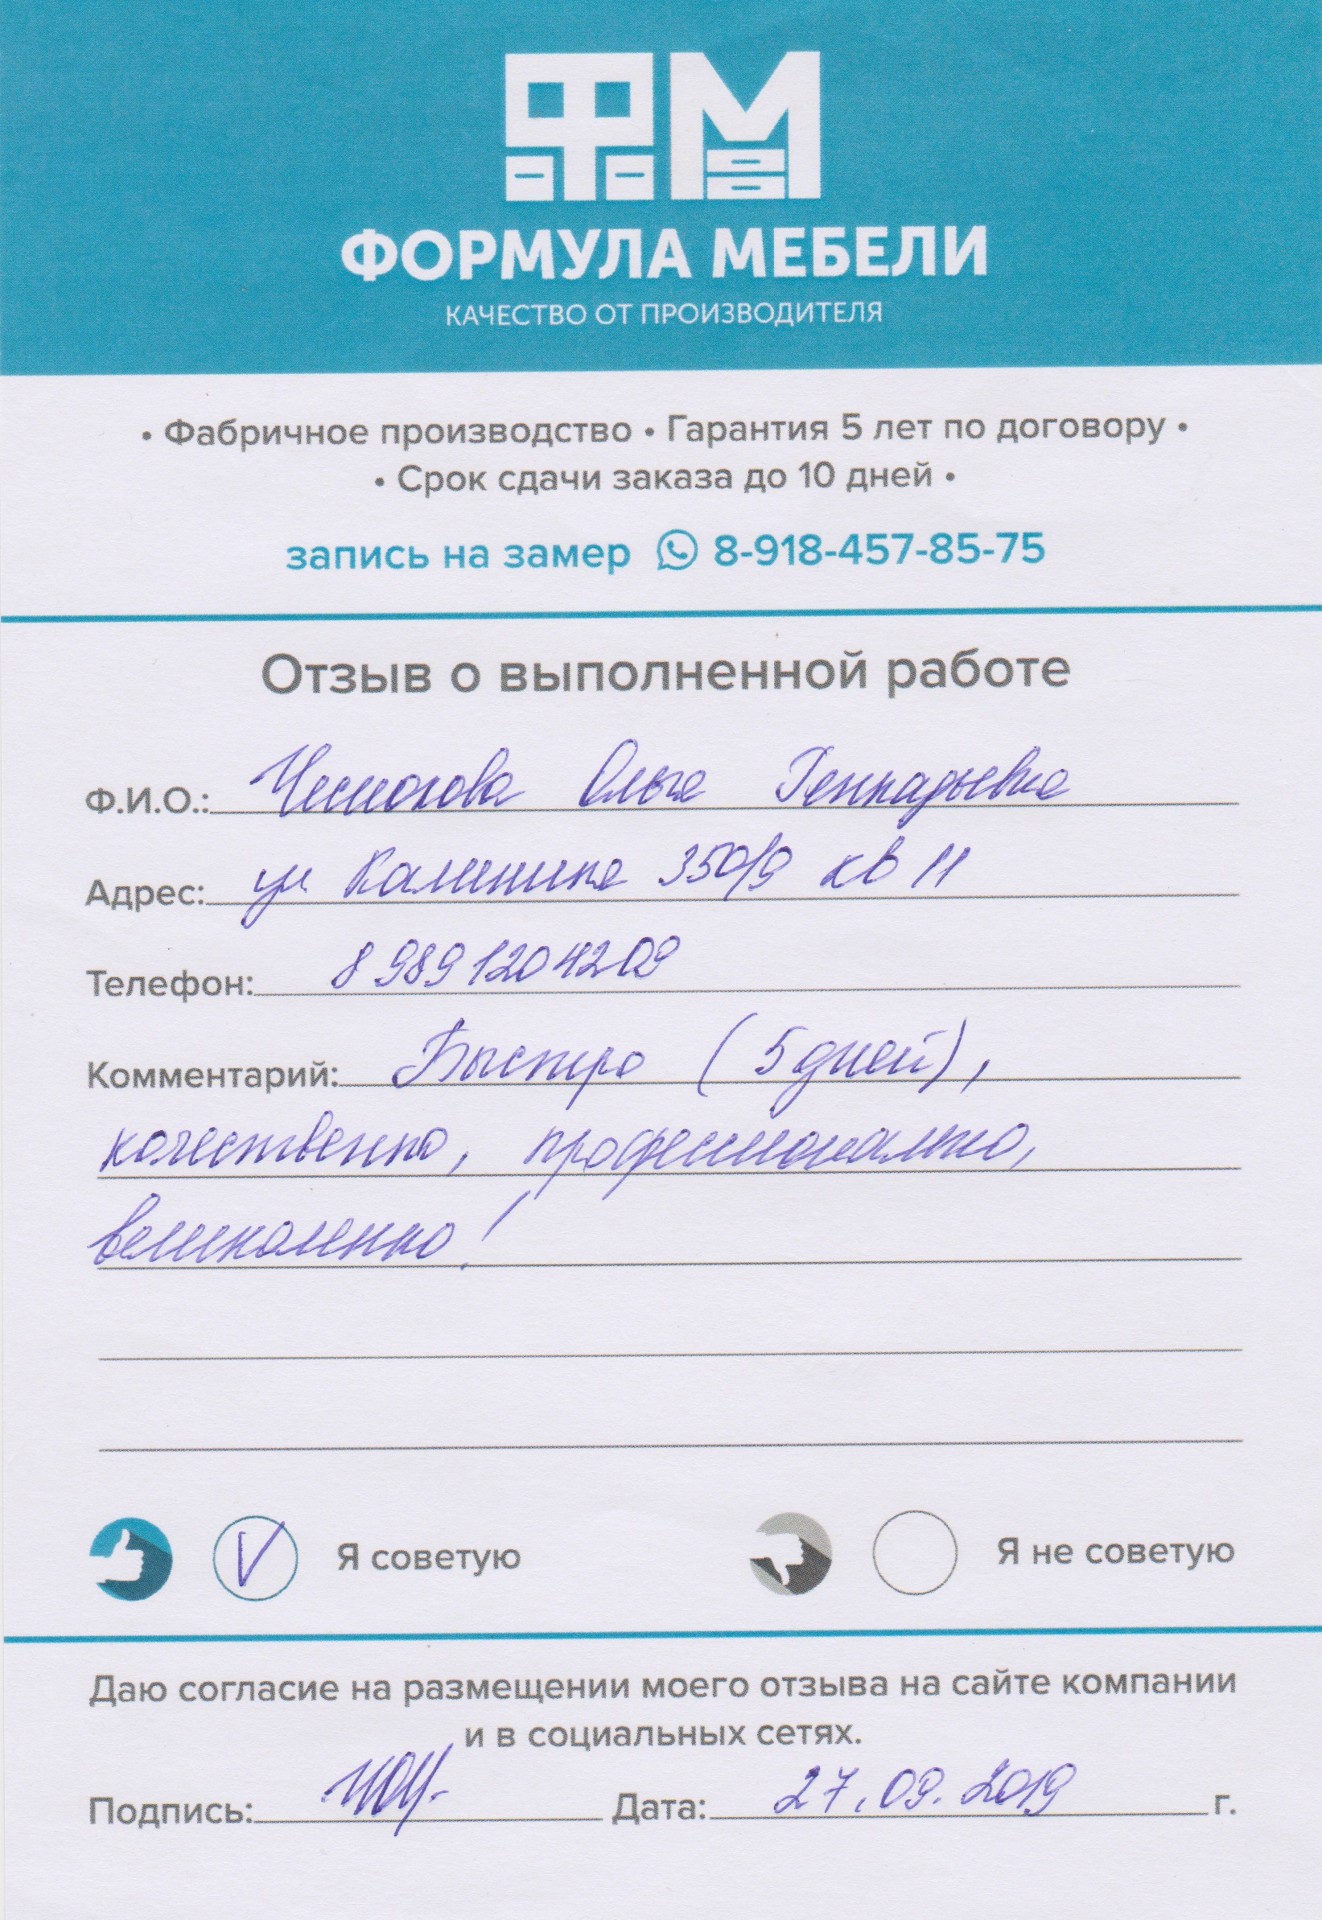 ФМ
ФОРМУЛА МЕБЕЛИ
КАЧЕСТВО ОТ ПРОИЗВОДИТЕЛЯ
• Фабричное производство • Гарантия 5 лет по договору •
• Срок сдачи заказа до 10 дней •
запись на замер 8-918-457-85-75
Отзыв о выполненной работе
Ф.И.О.: Чеснокова Ольга Геннадьевна
Адрес: ул Калинина 350/9 кв 11
Телефон: 8 989 1204209
Комментарий: Быстро (5 дней),
качественно, профессионально,
великолепно!
V Я советую Я не советую
Даю согласие на размещении моего отзыва на сайте компании
и в социальных сетях.
Подпись: Дата: 27.09.2019 г.